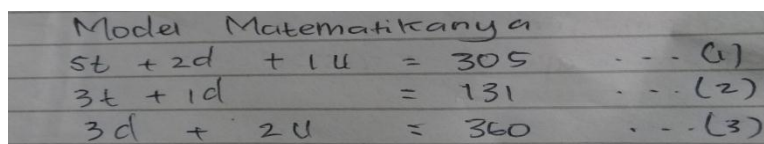 Model Matematikanya
5t + 2d + 1u = 305 ... (1)
3t + 1d = 131 ... (2)
3d + 2u = 360 ... (3)